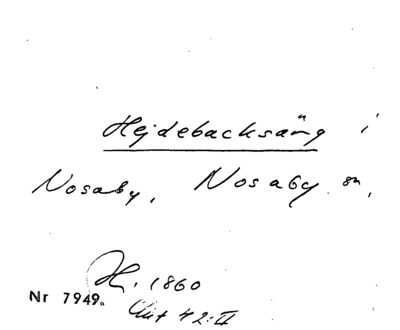 Hejdebacksäng i
Nosaby, Nosaby sn,
H. 1860
Nr 7949.
42:II